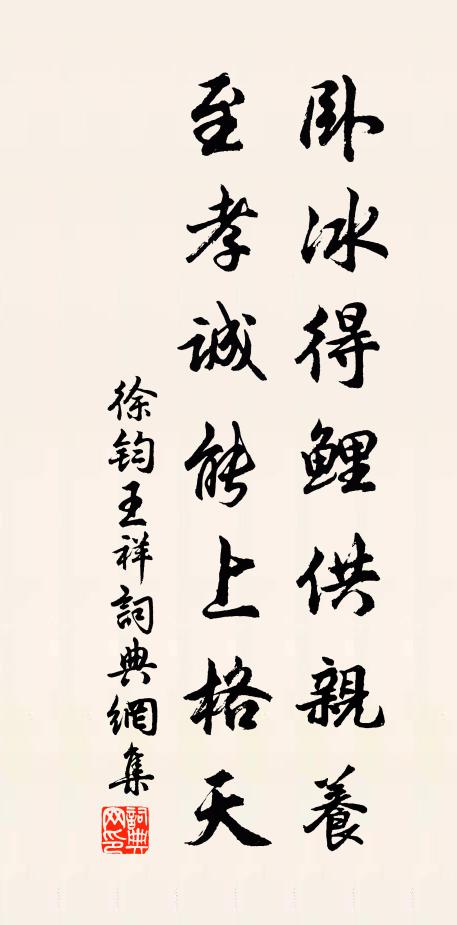 卧冰得鯉供親養
至孝誠能上格天
徐鈞王祥詞典網集
詞典网印